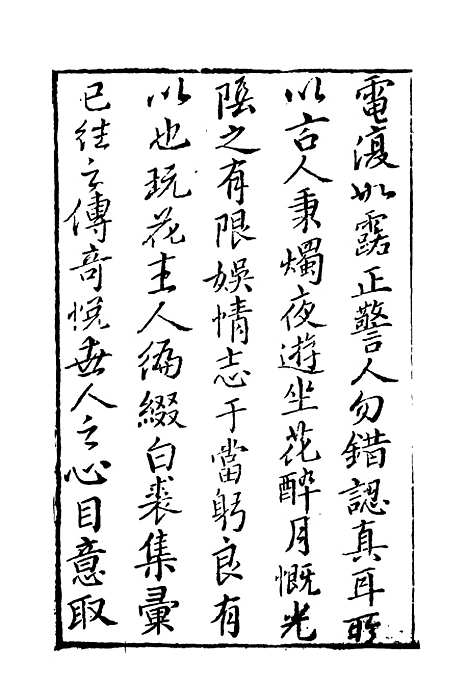 電復如露正警人勿錯認真耳所
以古人秉燭夜遊坐花醉月慨光
陰之有限娛情志于當躬良有
以也玩花主人編綴白裘集彙
已往之傳奇悅世人之心目意取